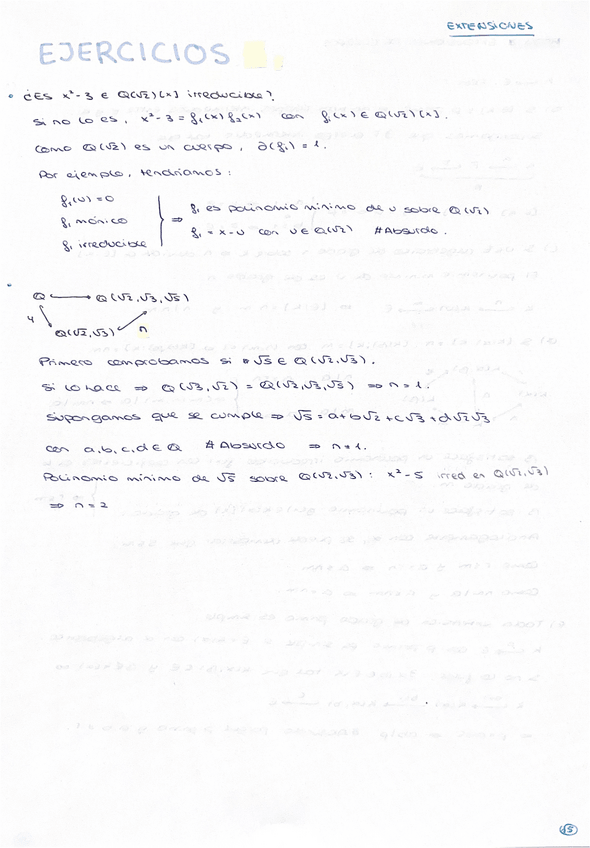 EXTENSIONES
EJERCICIOS
• ¿Es x²-3 ∈ Q(√2)[x] irreducible?
Si no lo es, x²-3 = f₁(x) f₂(x) con fᵢ(x) ∈ Q(√2)[x].
Como Q(√2) es un cuerpo, ∂(fᵢ) = 1.
Por ejemplo, tendríamos:
f₁(u) = 0
f₁ mónico
f₁ irreducible
⇒ f₁ es polinomio mínimo de u sobre Q(√2)
f₁ = x-u con u ∈ Q(√2) #Absurdo.
• Q → Q(√2,√3,√5)
4 Q(√2,√3) n
Primero comprobamos si √5 ∈ Q(√2,√3).
Si lo hace ⇒ Q(√3,√2) = Q(√2,√3,√5) ⇒ n = 1.
Supongamos que se cumple ⇒ √5 = a+b√2+c√3+d√2√3
con a,b,c,d ∈ Q #Absurdo ⇒ n = 1.
Polinomio mínimo de √5 sobre Q(√2,√3): x²-5 irred en Q(√2,√3)
⇒ n = 2
15